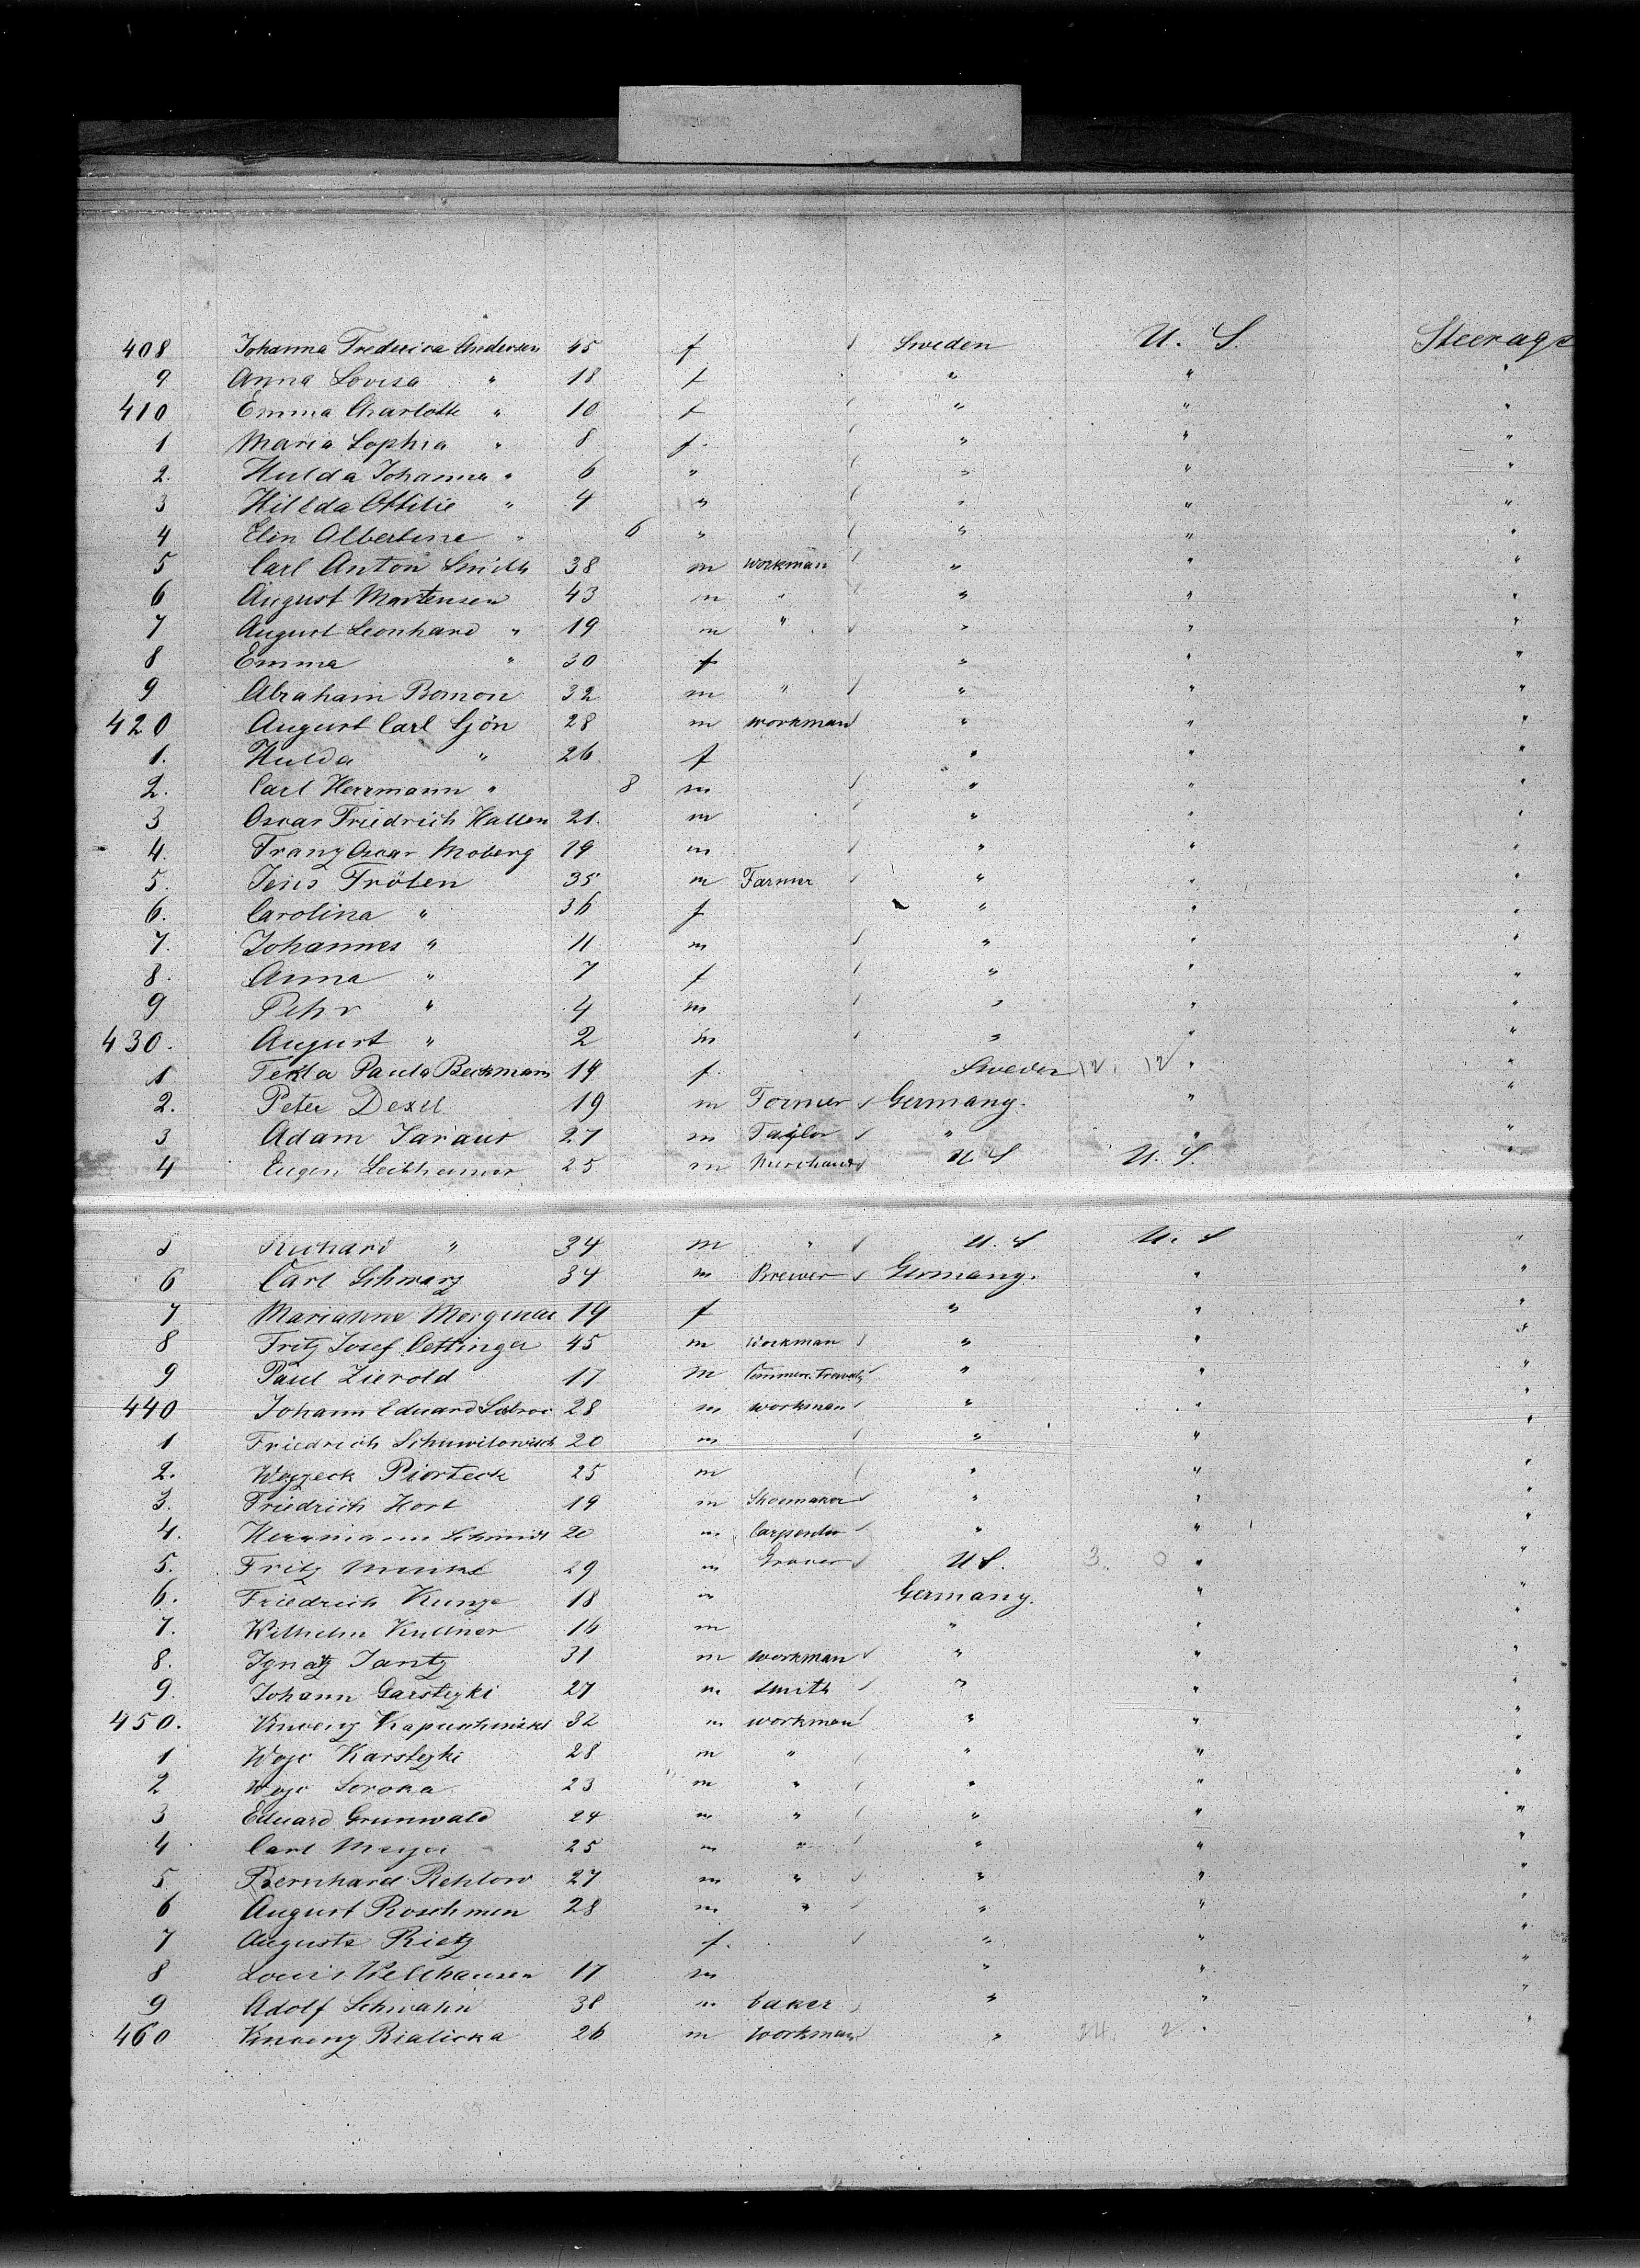 408 Johanna Frederica Andersen 45 f Sweden U. S. Steerage
9 Anna Lovisa " 18 f " " "
410 Emma Charlotte " 10 f " " "
1 Maria Sophia " 8 f. " " "
2. Hulda Johanna " 6 " " " "
3 Hillda Ottilie " 4 " " " "
4 Elin Albertine " 6 " " " "
5 Carl Anton Smith 38 m workman " " "
6 August Martensen 43 m " " " "
7 August Leonhard " 19 m " " " "
8 Emma " 30 f " " "
9 Abraham Bomon 32 m " " " "
420 August Carl Sjön 28 m workman " " "
1. Hulda " 26 f " " "
2. Carl Herrmann " 8 m " " "
3 Oscar Friedrich Hallen 21. m " " "
4. Franz Oscar Moberg 19 m " " "
5. Jens Fröten 35 m Farmer " " "
6. Carolina " 36 f " " "
7. Johannes " 11 m " " "
8. Anna " 7 f " " "
9 Pehr " 4 m " " "
430. August " 2 m " " "
1 Tekla Paula Beckmann 19 f. Sweden 12. 12 " "
2. Peter Dexel 19 m Germany. " "
3 Adam 27 m Taylor " " "
4 Eugen Leitheimer 25 m Merchand U S U. S. "
5 Richard " 34 m " U. S U. S "
6 Carl Schwarz 34 m Brewer Germany. " "
7 Marianne 19 f " " "
8 Fritz Josef Oettinger 45 m Workman " " "
9 Paul Zierold 17 m " " "
440 Johann Eduard 28 m workman " " "
1 Friedrich 20 m " " "
2. Piorteck 25 m " " "
3. Friedrich Horl 19 m Shoemaker " " "
4. Herrmann Schmidt 20 m Carpenter " " "
5. Fritz 29 m Grocer U S. 3. 0 " "
6. Friedrich Kunze 18 m Germany. " "
7. Wilhelm Kullner 16 m " " "
8. Ignatz Jantz 31 m workman " " "
9. Johann Garstezki 27 m smith " " "
450. 32 m workman " " "
1 Wojc Karstezki 28 m " " " "
2 Wojc Soroka 23 m " " " "
3 Eduard Grunwald 24 m " " " "
4 Carl Meyer 25 m " " " "
5 Bernhard Rehlow 27 m " " " "
6 August Roschmen 28 m " " " "
7 Auguste Rietz f. " " "
8 Louis 17 m " " "
9 Adolf Schwahn 38 m baker " " "
460 Bialicka 26 m workman " 24. 2 " "